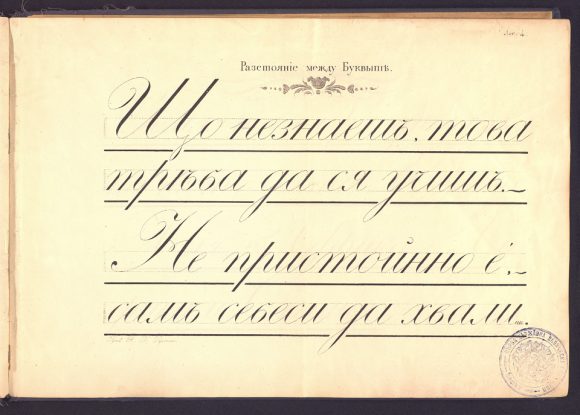 Разстояніе между Буквытѣ.
Що незнаешъ, това
трѣба да ся учишъ._
Не пристойнно é,_
самъ себеси да хвали